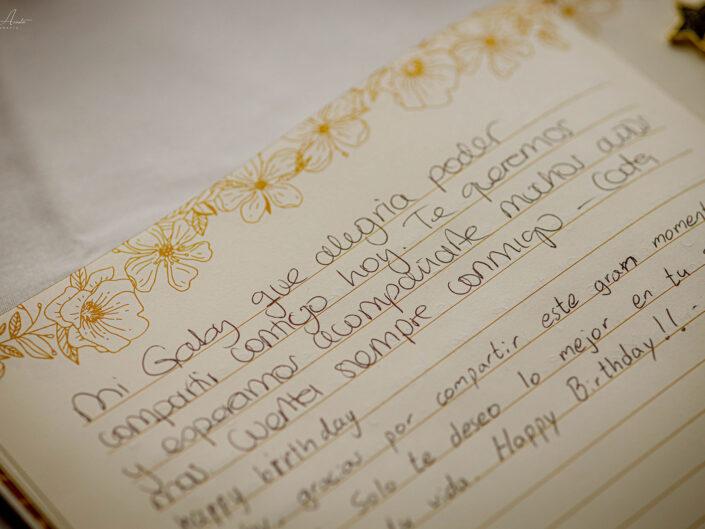 Mi Gaby que alegria poder
compartir contigo hoy. Te queremos
y esperamos acompañarte muchos años
mas. Cuenta siempre conmigo - Cata
happy birthday
gracias por compartir este gran moment
Solo te deseo lo mejor en tu
vida. Happy Birthday!!